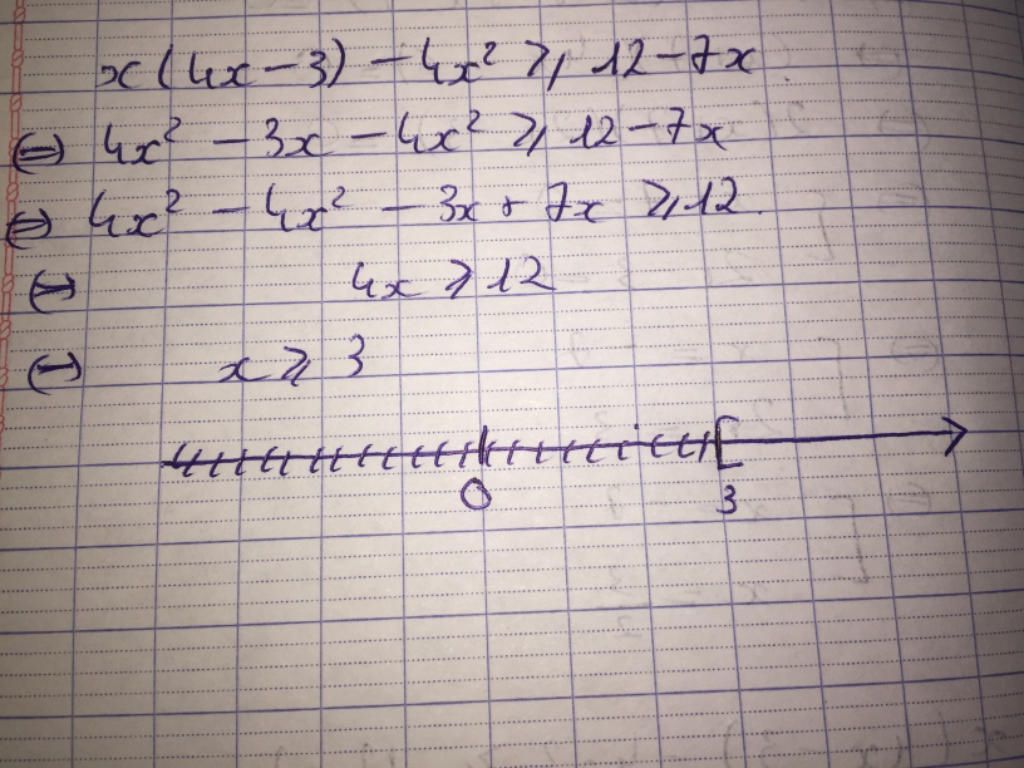 x(4x-3) - 4x² ⩾ 12-7x
⇔ 4x² - 3x - 4x² ⩾ 12-7x
⇔ 4x² - 4x² - 3x + 7x ⩾ 12
⇔ 4x ⩾ 12
⇔ x ⩾ 3
[
0 3